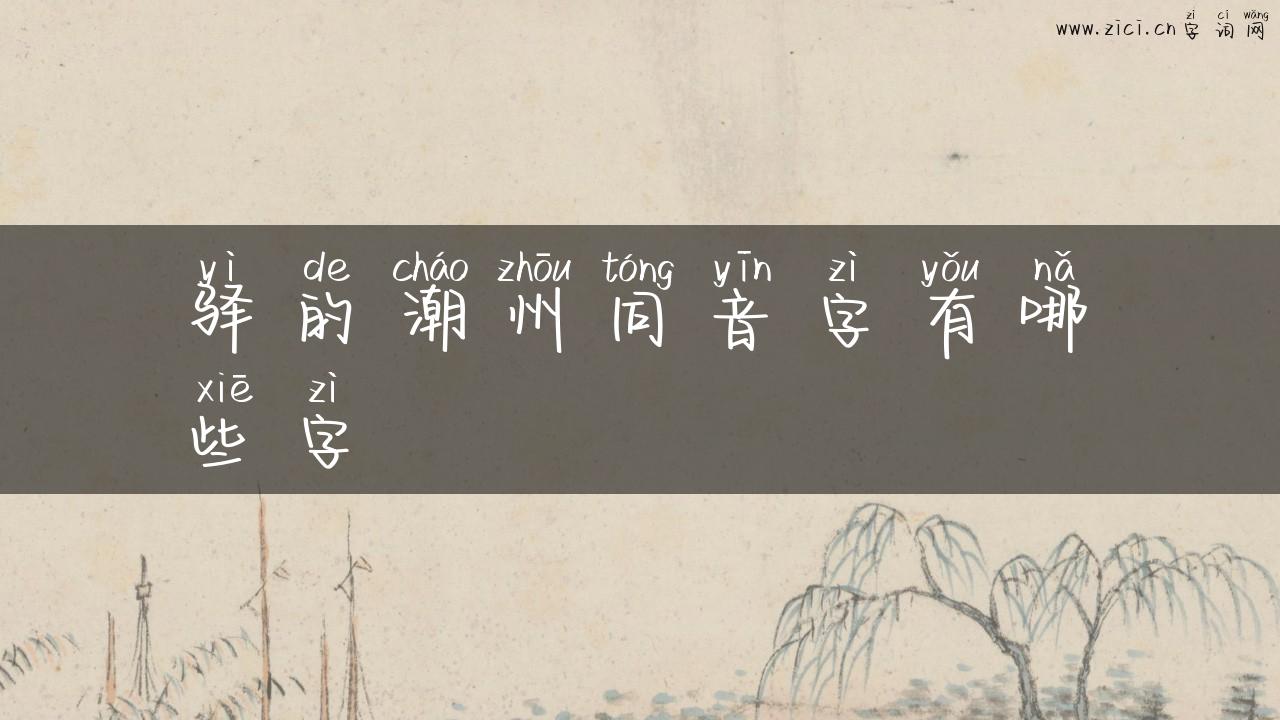 zì cí wǎng
www.zici.cn 字 词 网
yì de cháo zhōu tóng yīn zì yǒu nǎ
驿 的 潮 州 同 音 字 有 哪
xiē zì
些 字